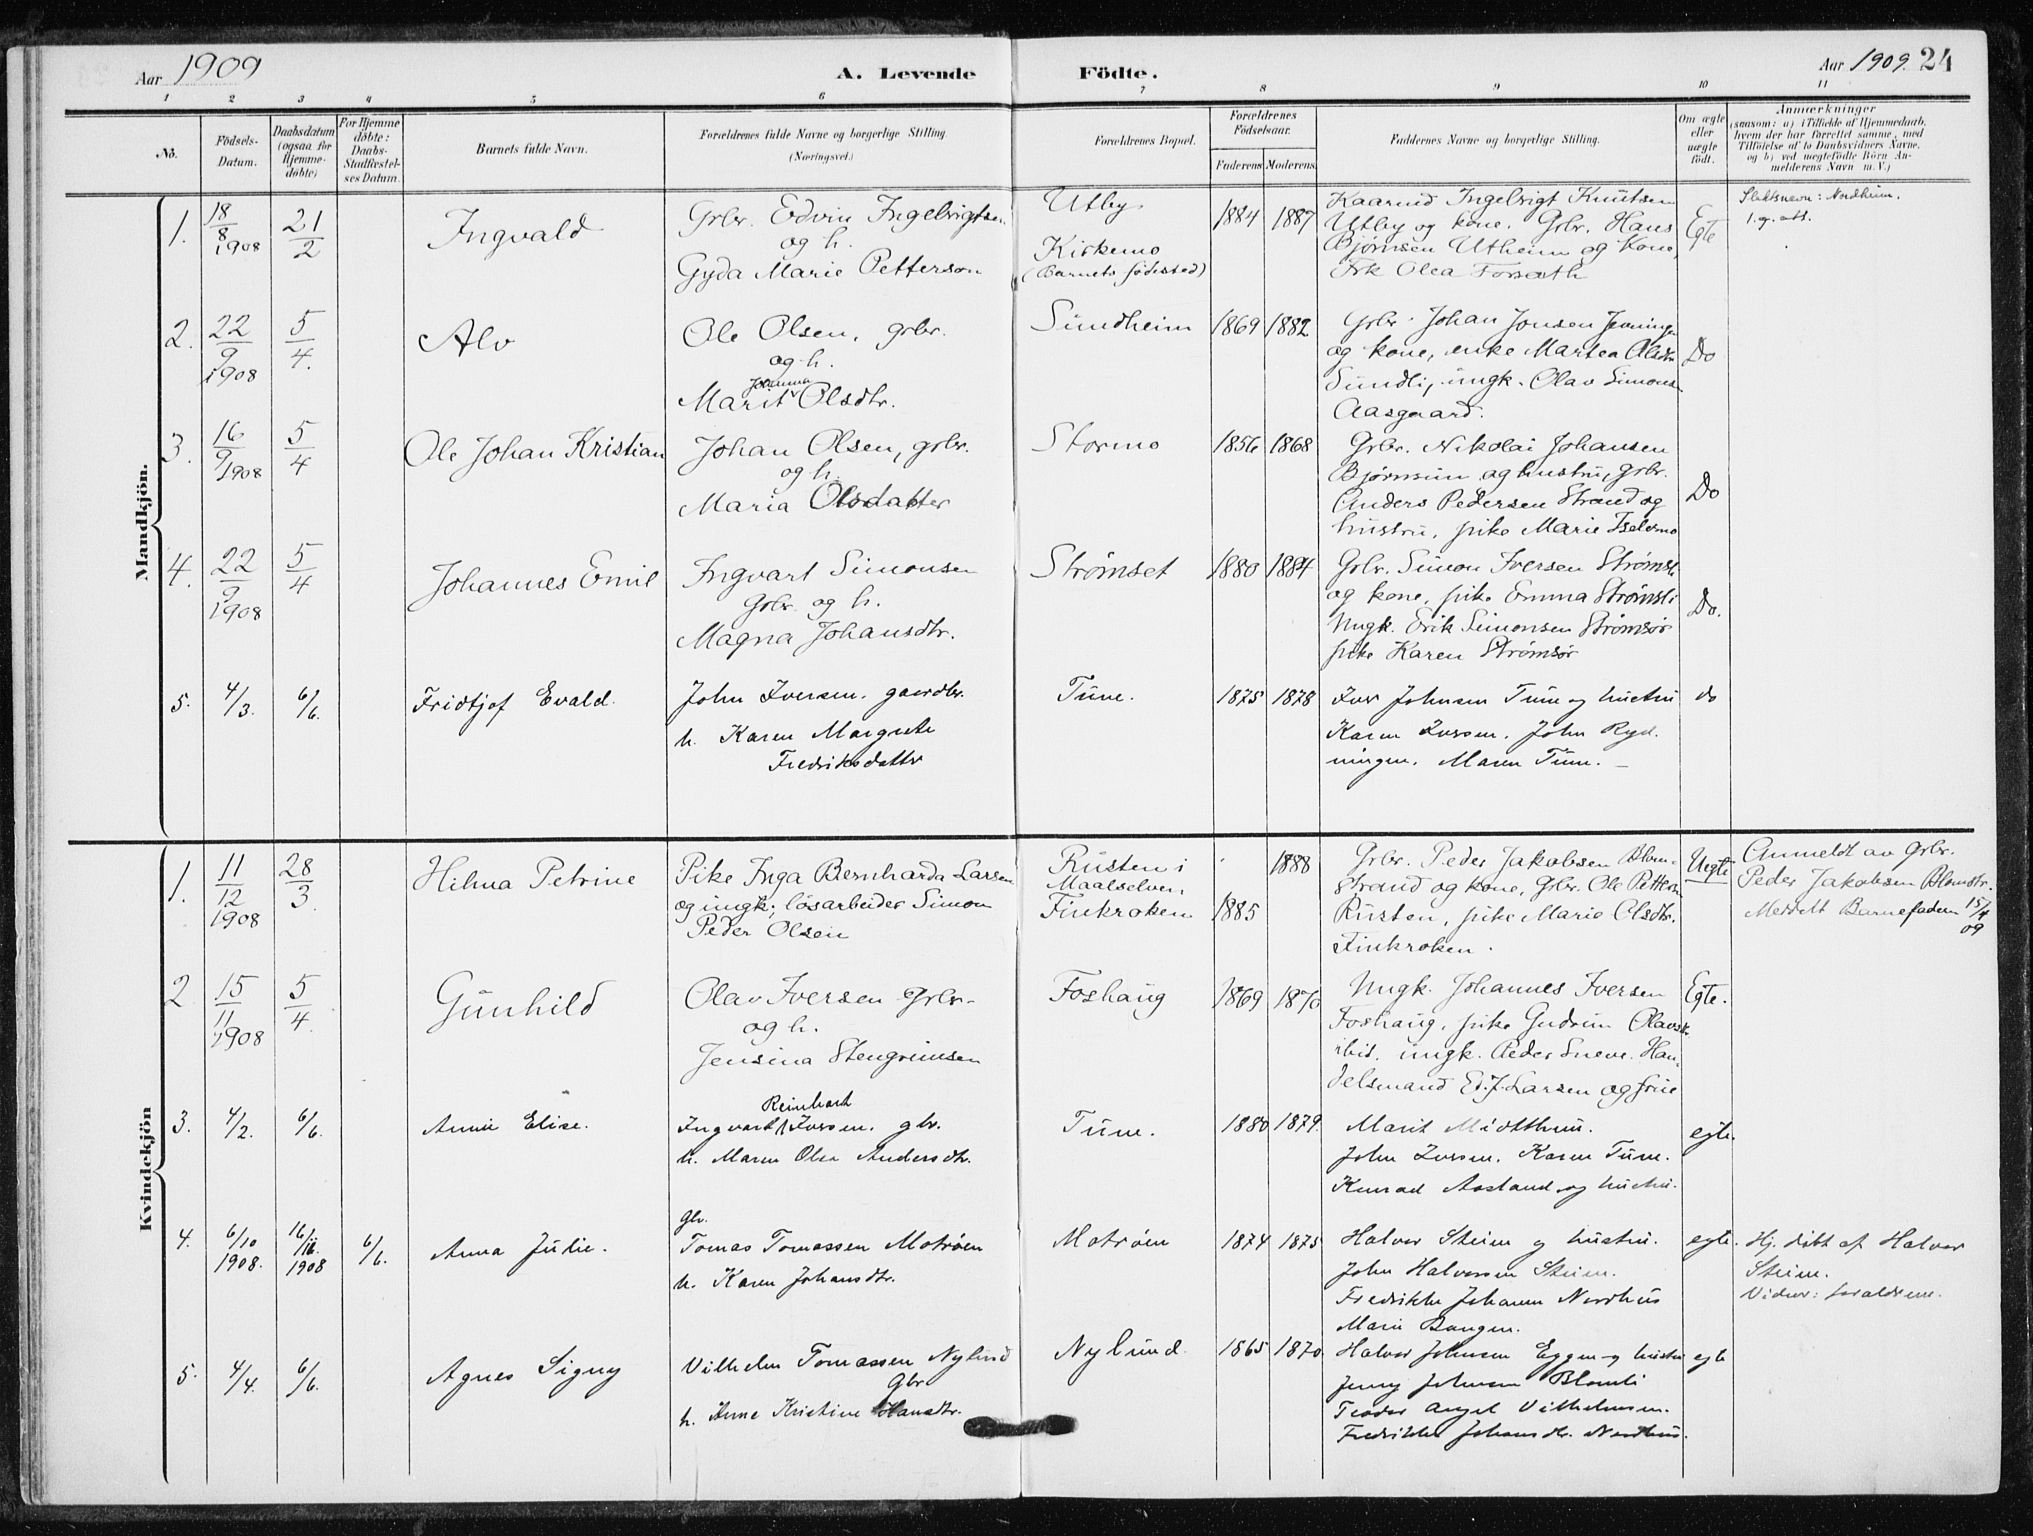 Aar 1909
A. Levende Födte.
Aar 1909. 24
1 2 3 4 5 6 7 8 9 10 11
No.
Födsels-
Datum.
Daabsdatum
(ogsaa for
Hjemme-
döbte)
For Hjemme
döbte:
Daabs-
Stadfæstel-
ses Datum.
Barnets fulde Navn.
Forældrenes fulde Navne og borgerlige Stilling.
(Næringsvei.)
Forældrenes Bopæl.
Forældrenes
Födselsaar.
Faderens Moderens
Faddernes Navne og borgerlige Stilling.
Om ægte
eller
uægte
födt.
Anmærkninger
(saasom: a) i Tilfælde af Hjemmedaab,
hvem der har forrettet samme, med
Tilföielse af to Daabsvidners Navne,
og b) ved uægtefödte Börn An-
melderens Navn m.V.)
Mandkjön.
1.
18/8 1908
21/2
Ingvald
Grbr. Edvin Ingebrigtsen
og h.
Gyda Marie Petterson
Utby
Kirkemo
(Barnets fødested)
1884 1887
Kaarmd Ingebrigt Knutsen
Utby og kone. Grbr. Hans
Bjørnsen Utheim og kone,
Frk Olea Forseth
Egte
Slektsnavn: Nordheim.
1. g. att.
2.
22/9 1908
5/4.
Alv
Ole Olsen, grbr.
og h.
Johanna
Marit Olsdtr.
Sundheim
1869 1882
Grbr. Johan Jonsen
og kone, enke Martea Olsdtr
Sundli, ungk. Olav Simons
Aasgaard.
Do
3.
16/9 1908
5/4
Ole Johan Kristian
Johan Olsen, grbr.
og h.
Maria Olsdatter
Stormo
1856 1868
Grbr. Nikolai Johansen
Bjørnsun og hustru, grbr.
Anders Pedersen Strand og
hustru, pike Marie Iselvmo
Do
4.
22/9 1908
5/4
Johannes Emil
Ingvart Simonsen
Grbr. og h.
Magna Johansdtr.
Strømset
1880 1884
Grbr. Simon Iversen Strømsli
og kone, pike Emma Strømsli
Ungk. Erik Simonsen Strømsør
pike Karen Strømsør
Do.
5.
4/3.
6/6.
Fridtjof Evald.
John Iversen. gaardbr.
h. Karen Margrete
Fredriksdatter
Tune.
1875 1878
Iver Johnsen Tune og hustru
Karen Iversen. John Ryd-
ningen. Maren Tune.
do
Kvindekjön
1.
11/12 1908
28/3.
Hilma Petrine
Pike Inga Bernharda Larsen
og ungk; løsarbeider Simon
Peder Olsen
Rusten i
Maalselven,
Finkroken
1885
1888
Grbr. Peder Jakobsen Blom-
strand og kone, Grbr. Ole Petters
Rusten, pike Marie Olsdtr.
Finkroken.
Uegte
Anmeldt av Grbr.
Peder Jakobsen Blomstr.
Meddelt Barnefaderen 15/4
09
2
15/11 1908
5/4.
Gunhild
Olav Iversen Grbr.
og h.
Jensina Stengrimsen
Foshaug
1869 1870
Ungk. Johannes Iversen
Foshaug, pike Gudrun Olavsd.
ibid. ungk. Peder Sneve. Han-
delsmand Ed. J. Larsen og frue
Egte.
3.
4/2.
6/6.
Annie Elise.
Reinhart
Ingvart Iversen. gbr.
h. Maren Olea Andersdtr.
Tune.
1880 1879.
Marit Midtthun.
John Iversen. Karen Tune.
Konrad Aasland og hustru.
egte.
4.
6/10 1908.
16/11. 1908
6/6.
Anna Julie.
gbr.
Tomas Tomassen Motrøen
h. Karen Johansdtr.
Motrøen
1874 1875
Halvor Steien og hustru.
John Halvorsen Steien.
Fredrikke Johansen Nordhus
Marie Bangen.
egte.
Hj. døbt af Halvor
Steien.
Vidner: forældrene.
5.
4/4.
6/6.
Agnes Signy
Vilhelm Tomassen Nylund
Gbr
h. Anne Kristine Hansdtr.
Nylund
1865 1870
Halvor Johnsen Eggen og hustru
Jenny Johnsen Blomli
Teodor Angel Vilhelmsen.
Fredrikke Johansdtr. Nordhus.
egte